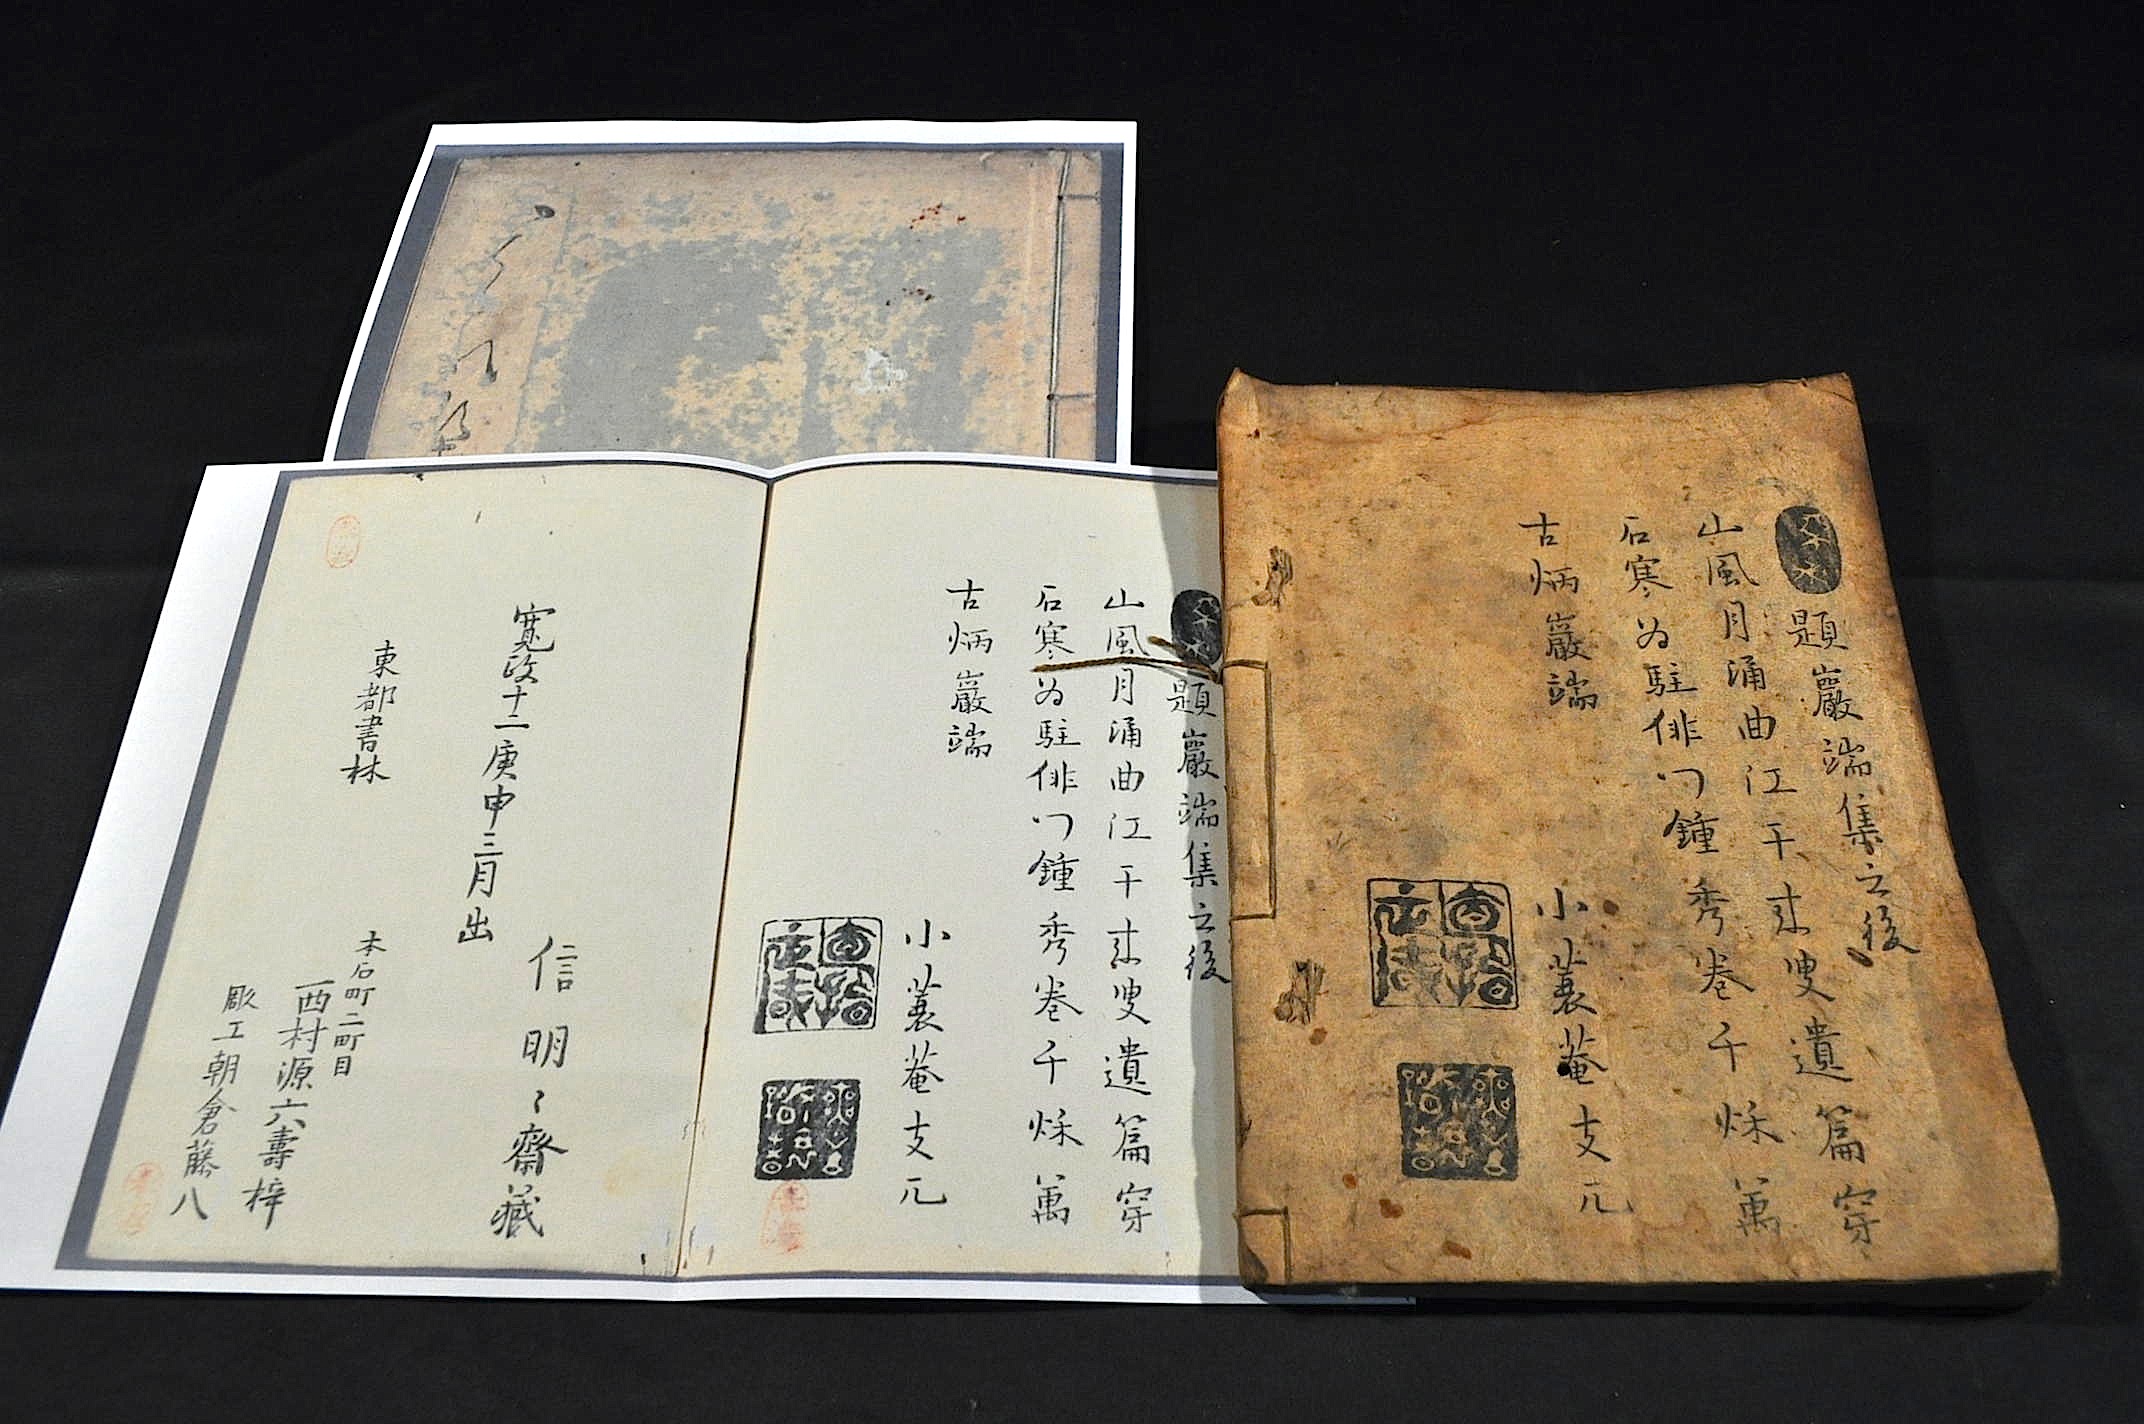 題巖端集之後
山風月涌曲江干来叟遺篇穿
石寒為駐俳門鐘秀巻千秌萬
古炳巖端
小蓑菴支兀
題巖端集之後
山風月涌曲江干来叟遺篇穿
石寒為駐俳門鐘秀巻千秌萬
古炳巖端
小蓑菴支兀
信明〻齋藏
寛政十二庚申三月出
東都書林
本石町二町目
西村源六壽梓
彫工朝倉藤八